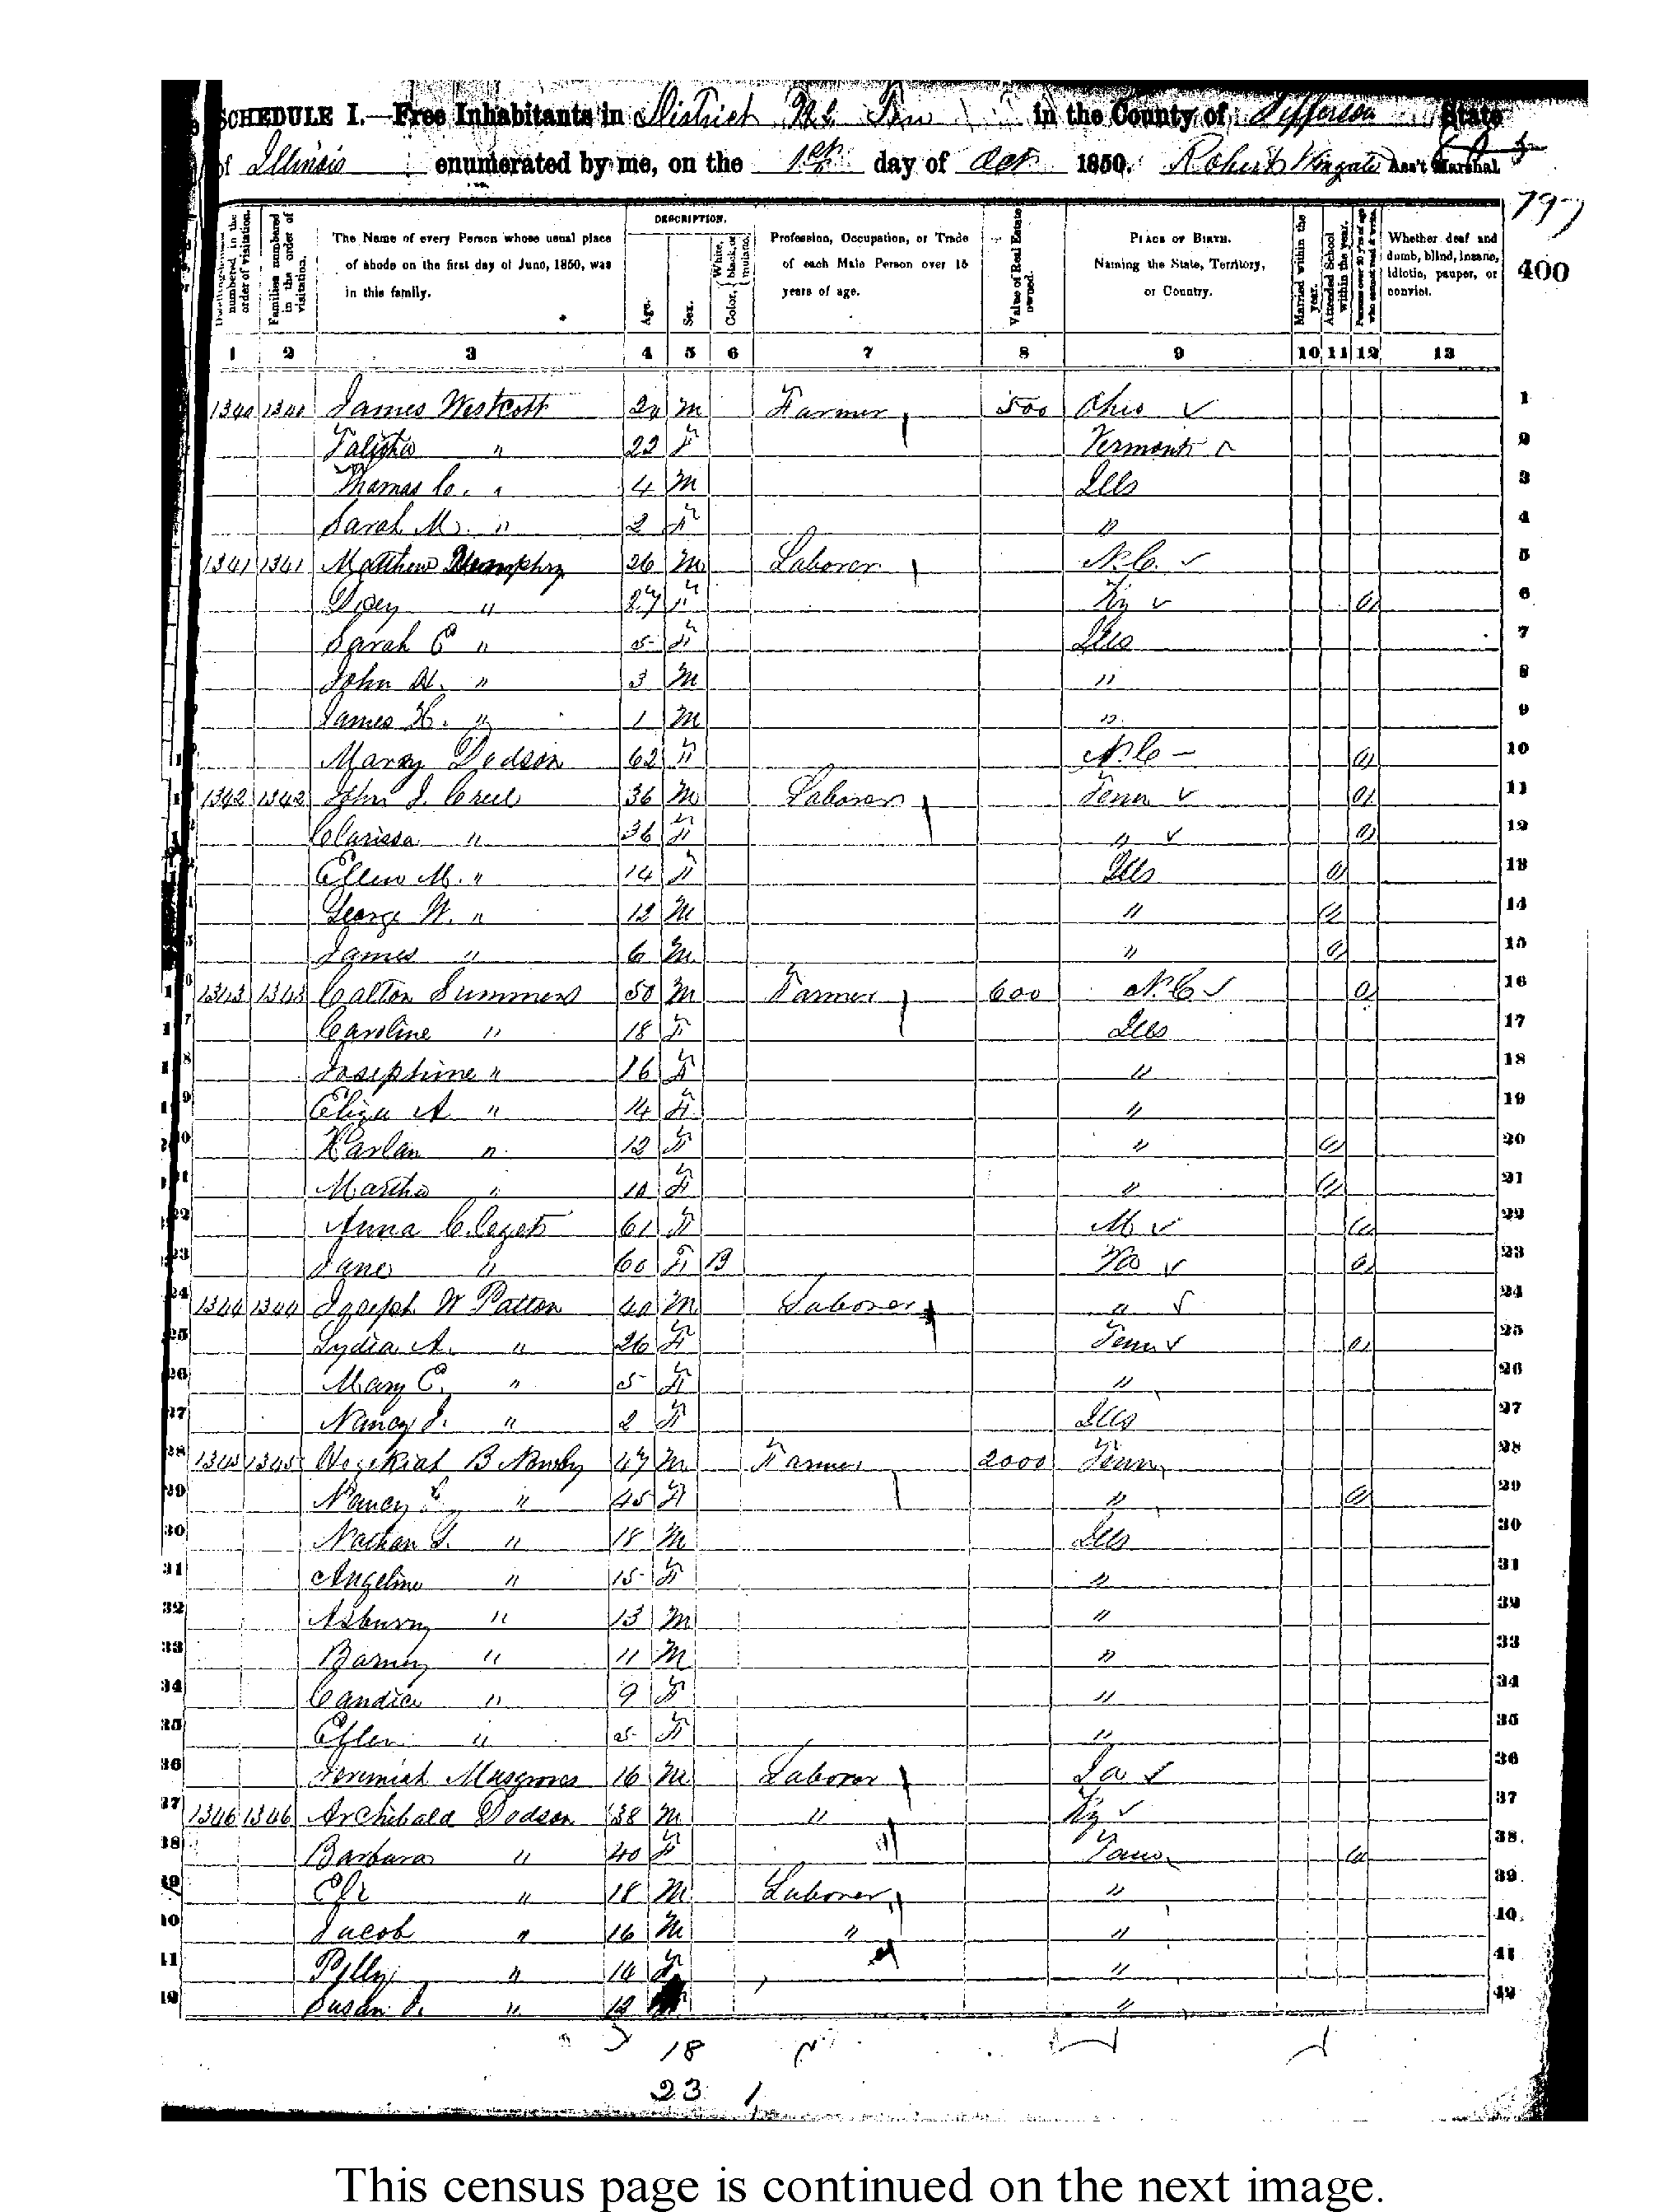 SCHEDULE I.—Free Inhabitants in District in the County of Jefferson State
of Illinois enumerated by me, on the 1st day of Oct 1850. Robert Wingate Ass't Marshal
797
400
Dwelling-houses numbered in the order of visitation.
Families numbered in the order of visitation.
The Name of every Person whose usual place of abode on the first day of June, 1850, was in this family.
DESCRIPTION.
Age.
Sex.
Color, White, black, or mulatto.
Profession, Occupation, or Trade of each Male Person over 15 years of age.
Value of Real Estate owned.
PLACE OF BIRTH. Naming the State, Territory, or Country.
Married within the year.
Attended School within the year.
Persons over 20 y'rs of age who cannot read & write.
Whether deaf and dumb, blind, insane, idiotic, pauper, or convict.
1 2 3 4 5 6 7 8 9 10 11 12 13
1340 1340 James Westcott M Farmer 500 Ohio 1
Talitha " 22 F Vermont 2
Thomas C. " 4 M Ills 3
Sarah M. " 2 F " 4
1341 1341 Matthew Humphry 26 M Laborer N.C. 5
Dicy " 27 F Ky 6
Sarah E " 5 F Ills 7
John " 3 M " 8
James H. " 1 M " 9
Dodson 62 F N.C 10
1342 1342 John J. Creel 36 M Laborer Tenn 11
Clarissa " 36 F " 12
Ellen M. " 14 F Ills 13
George W. " 12 M " 14
James " 6 M " 15
1343 1343 Calton Summers 50 M Farmer 600 N.C 16
Caroline " 18 F Ills 17
Josephine " 16 F " 18
Eliza A " 14 F " 19
Harlan " 12 F " 20
Martha " 10 F " 21
Anna 61 F M 22
Jane " 60 F B Va 23
1344 1344 Joseph W Patton 40 M Laborer " 24
Lydia A. " 26 F Tenn 25
Mary E. " 5 F " 26
Nancy J. " 2 F Ills 27
1345 1345 Hezekiah B Newby 47 M Farmer 2000 Tenn 28
Nancy " 45 F " 29
Nathan " 18 M Ills 30
Angeline " 15 F " 31
Asbury " 13 M " 32
Barney " 11 M " 33
Candice " 9 F " 34
" 5 F " 35
Jeremiah Musgroves 16 M Laborer Ia 36
1346 1346 Archibald Dodson 38 M " Ky 37
Barbara " 40 F Tenn 38
" 18 M Laborer " 39
Jacob " 16 M " " 40
" 14 F " 41
Susan J. " 12 " 42
18
23 1
This census page is continued on the next image.